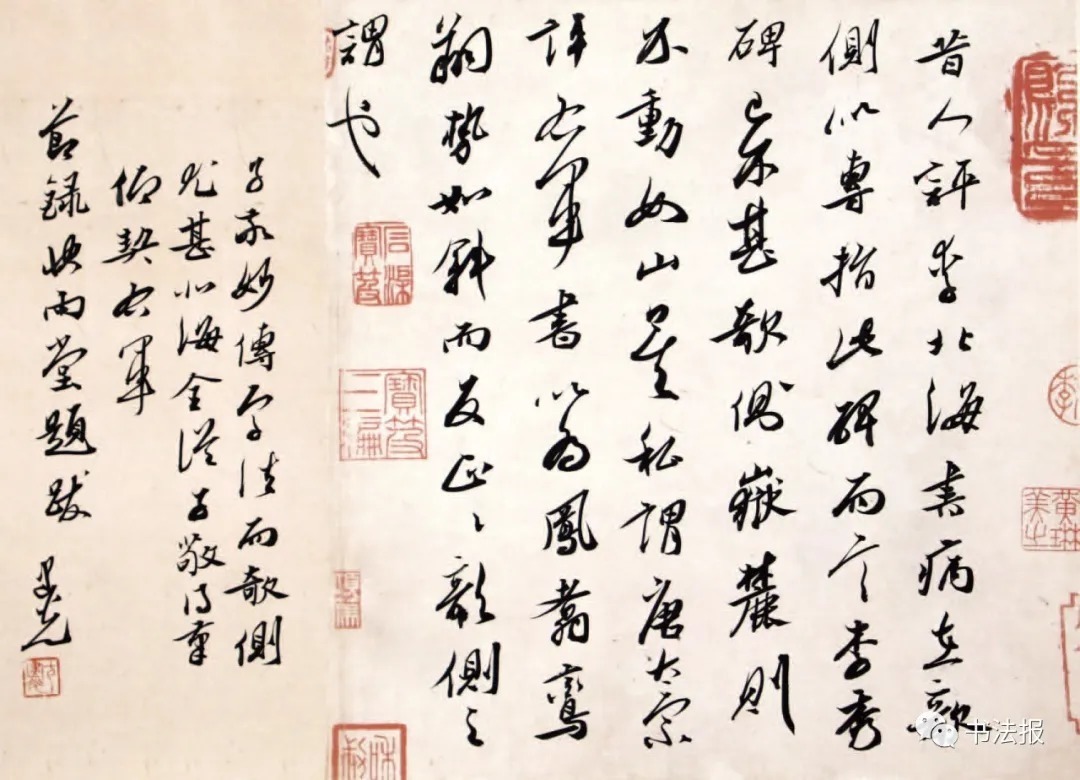 昔人評李北海書病在欹
側以專指此碑而言李秀
碑已不甚欹側嶽麓則
不動如山矣私謂唐太宗
評右軍書以為鳳翥鸞
翔勢如斜而反正〻欹側之
謂也
子敬妙傳字法而欹側
尤甚北海全從子敬得
仰契右軍
節録快雨堂題跋
黃琳美之
寶笈三編
书法报